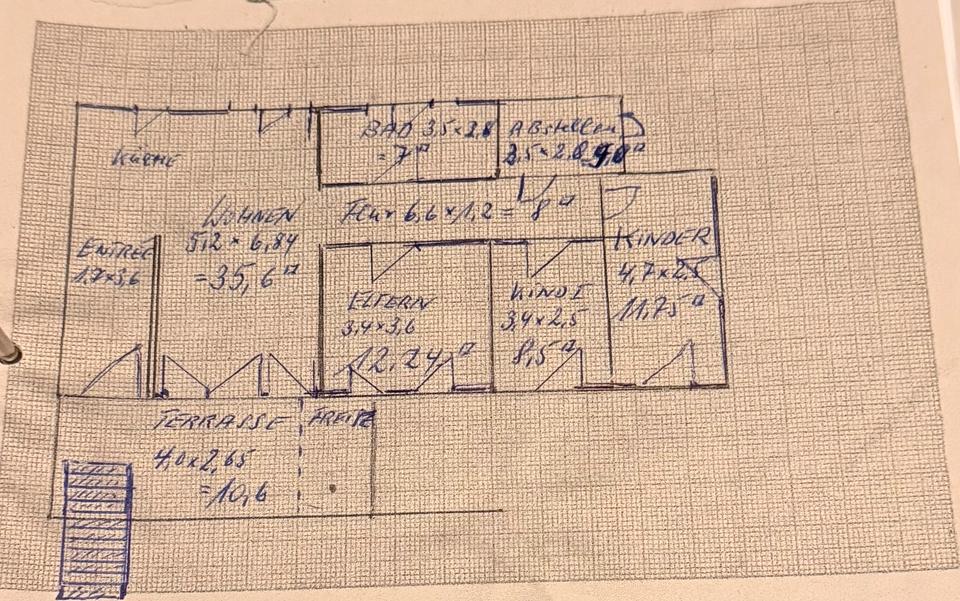 BAD 3,5 x 2,8
= 7 ¤
Abstellen
2,5 x 2,8
Küche
WOHNEN
5,2 x 6,84
= 35,6 ¤
Flur 6,6 x 1,2 = 8 ¤
ENTREE
1,7 x 3,6
KINDER
4,7 x 2,5
11,75 ¤
ELTERN
3,4 x 3,6
12,24 ¤
KIND I
3,4 x 2,5
8,5 ¤
TERRASSE
4,0 x 2,65
= 10,6